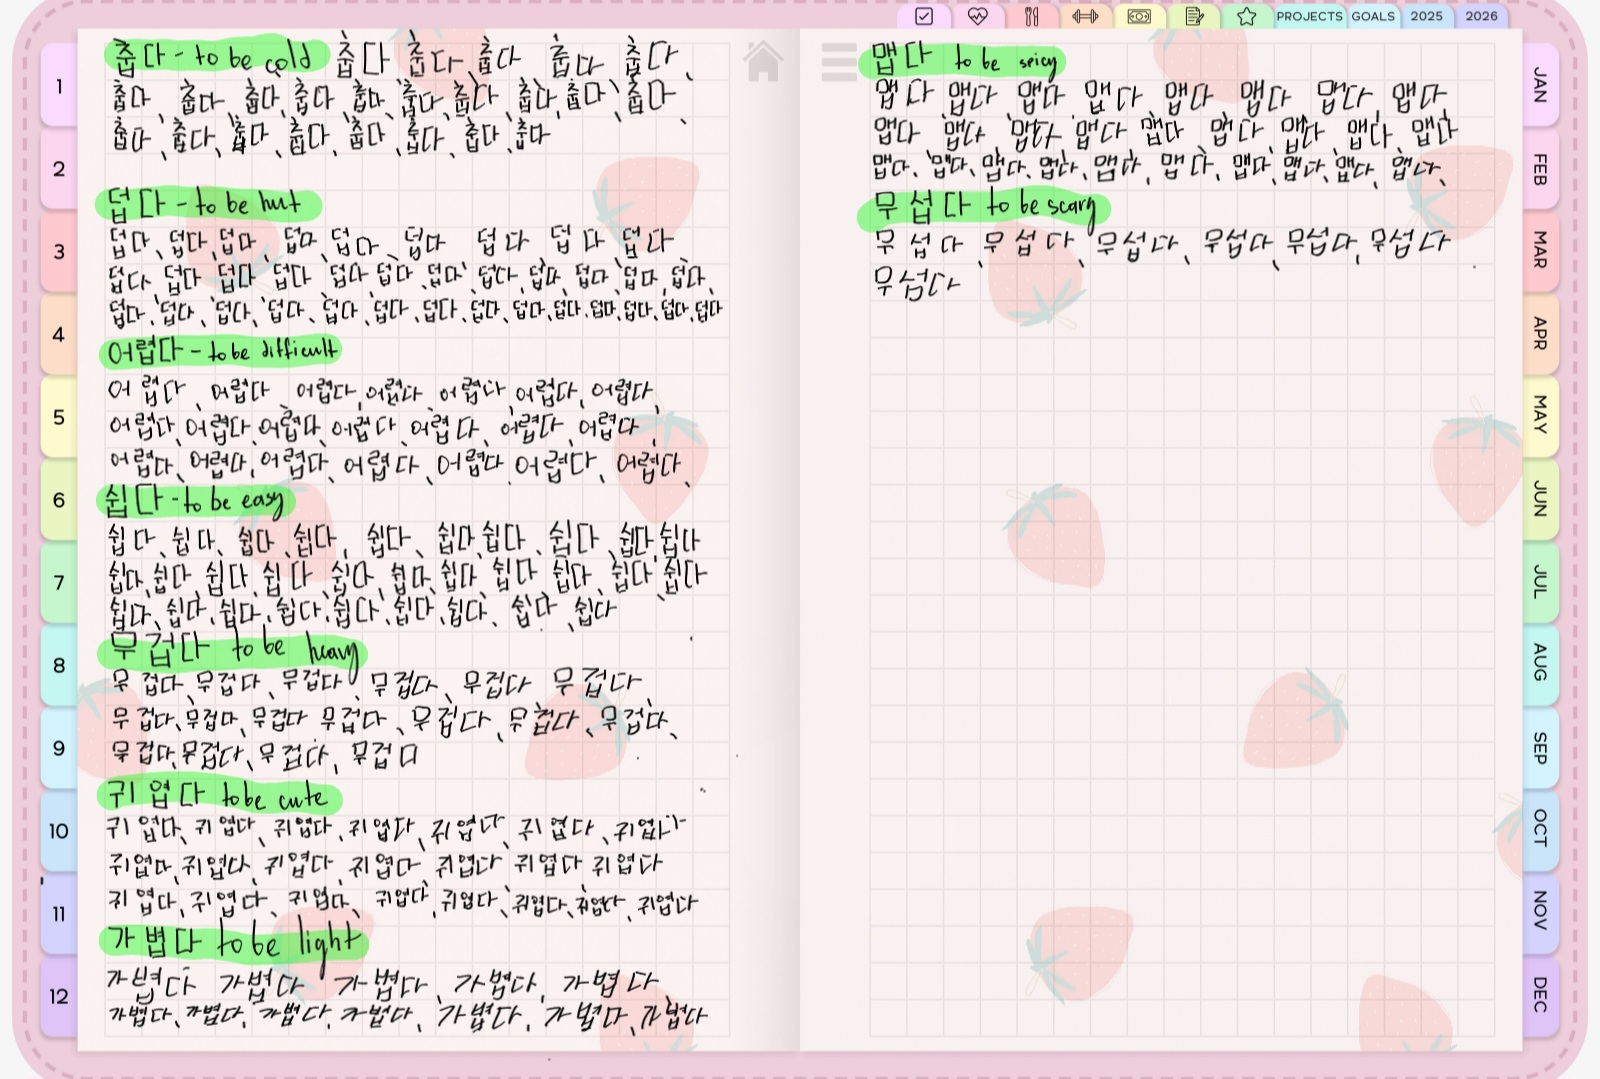 PROJECTS GOALS 2025 2026
1
2
3
4
5
6
7
8
9
10
11
12
춥다 - to be cold 춥다 춥다 춥다 춥다 춥다,
춥다, 춥다, 춥다, 춥다, 춥다, 춥다, 춥다, 춥다, 춥다, 춥다,
춥다, 춥다, 춥다, 춥다, 춥다, 춥다, 춥다, 춥다
덥다 - to be hut
덥다, 덥다, 덥다, 덥다, 덥다, 덥다 덥다 덥다 덥다
덥다, 덥다, 덥다, 덥다, 덥다, 덥다, 덥다, 덥다, 덥다, 덥다, 덥다, 덥다,
덥다, 덥다, 덥다, 덥다, 덥다, 덥다, 덥다, 덥다, 덥다, 덥다, 덥다, 덥다, 덥다, 덥다
어렵다 - to be difficult
어렵다, 어렵다, 어렵다, 어렵다, 어렵다, 어렵다, 어렵다,
어렵다, 어렵다, 어렵다, 어렵다, 어렵다, 어렵다, 어렵다,
어렵다, 어렵다, 어렵다, 어렵다, 어렵다, 어렵다, 어렵다,
쉽다 - to be easy
쉽다, 쉽다, 쉽다, 쉽다, 쉽다, 쉽다, 쉽다, 쉽다, 쉽다, 쉽다
쉽다, 쉽다, 쉽다, 쉽다, 쉽다, 쉽다, 쉽다, 쉽다, 쉽다, 쉽다, 쉽다,
쉽다, 쉽다, 쉽다, 쉽다, 쉽다, 쉽다, 쉽다, 쉽다, 쉽다
무겁다 to be heavy
무겁다, 무겁다, 무겁다, 무겁다, 무겁다 무겁다,
무겁다, 무겁다, 무겁다 무겁다, 무겁다, 무겁다, 무겁다,
무겁다, 무겁다, 무겁다, 무겁다
귀엽다 to be cute
귀엽다, 귀엽다, 귀엽다, 귀엽다, 귀엽다, 귀엽다, 귀엽다
귀엽다, 귀엽다, 귀엽다, 귀엽다, 귀엽다 귀엽다 귀엽다
귀엽다, 귀엽다, 귀엽다, 귀엽다, 귀엽다, 귀엽다, 귀엽다, 귀엽다
가볍다 to be light
가볍다 가볍다 가볍다, 가볍다, 가볍다
가볍다, 가볍다, 가볍다, 가볍다, 가볍다, 가볍다, 가볍다
맵다 to be spicy
맵다 맵다 맵다 맵다 맵다 맵다 맵다, 맵다
맵다 맵다 맵다, 맵다 맵다 맵다, 맵다, 맵다, 맵다
맵다, 맵다, 맵다, 맵다, 맵다, 맵다, 맵다, 맵다, 맵다, 맵다,
무섭다 to be scary
무섭다, 무섭다, 무섭다, 무섭다, 무섭다, 무섭다
무섭다
JAN
FEB
MAR
APR
MAY
JUN
JUL
AUG
SEP
OCT
NOV
DEC